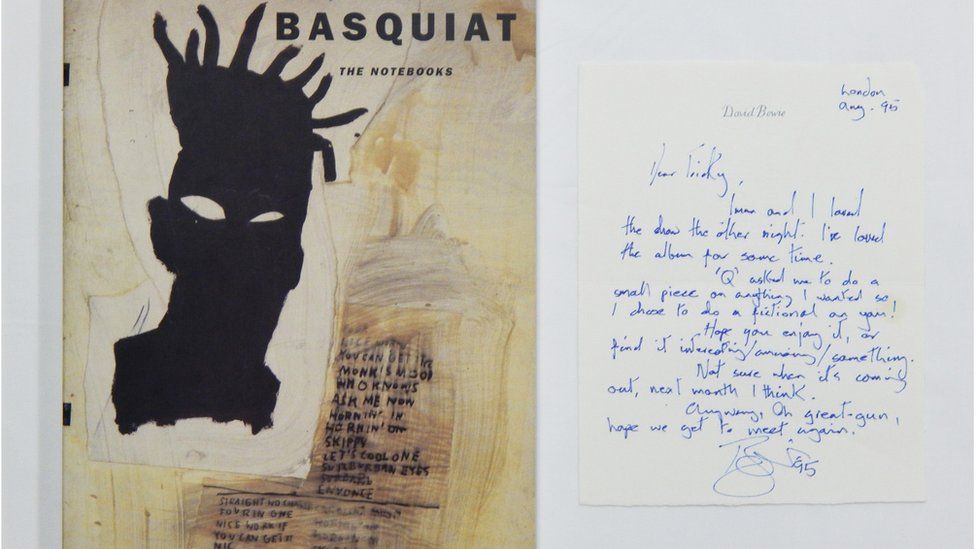 BASQUIAT
THE NOTEBOOKS
NICE WORK
YOU CAN GET IT
MONK'S MOOD
WHO KNOWS
ASK ME NOW
HORNIN' IN
HORNIN' ON
SKIPPY
LET'S COOL ONE
SUBURBAN EYES
EVONCE
STRAIGHT NO CHASER
FOUR IN ONE
NICE WORK IF
YOU CAN GET IT
NIC
London
Aug. 95
David Bowie
Dear Tricky,
Iman and I loved
the show the other night. I've loved
the album for some time.
'Q' asked me to do a
small piece on anything I wanted so
I chose to do a fictional on you!
Hope you enjoy it, or
find it interesting/annoying/something.
Not sure when it's coming
out, next month I think.
Anyway, Oh great-gun,
hope we get to meet again.
95